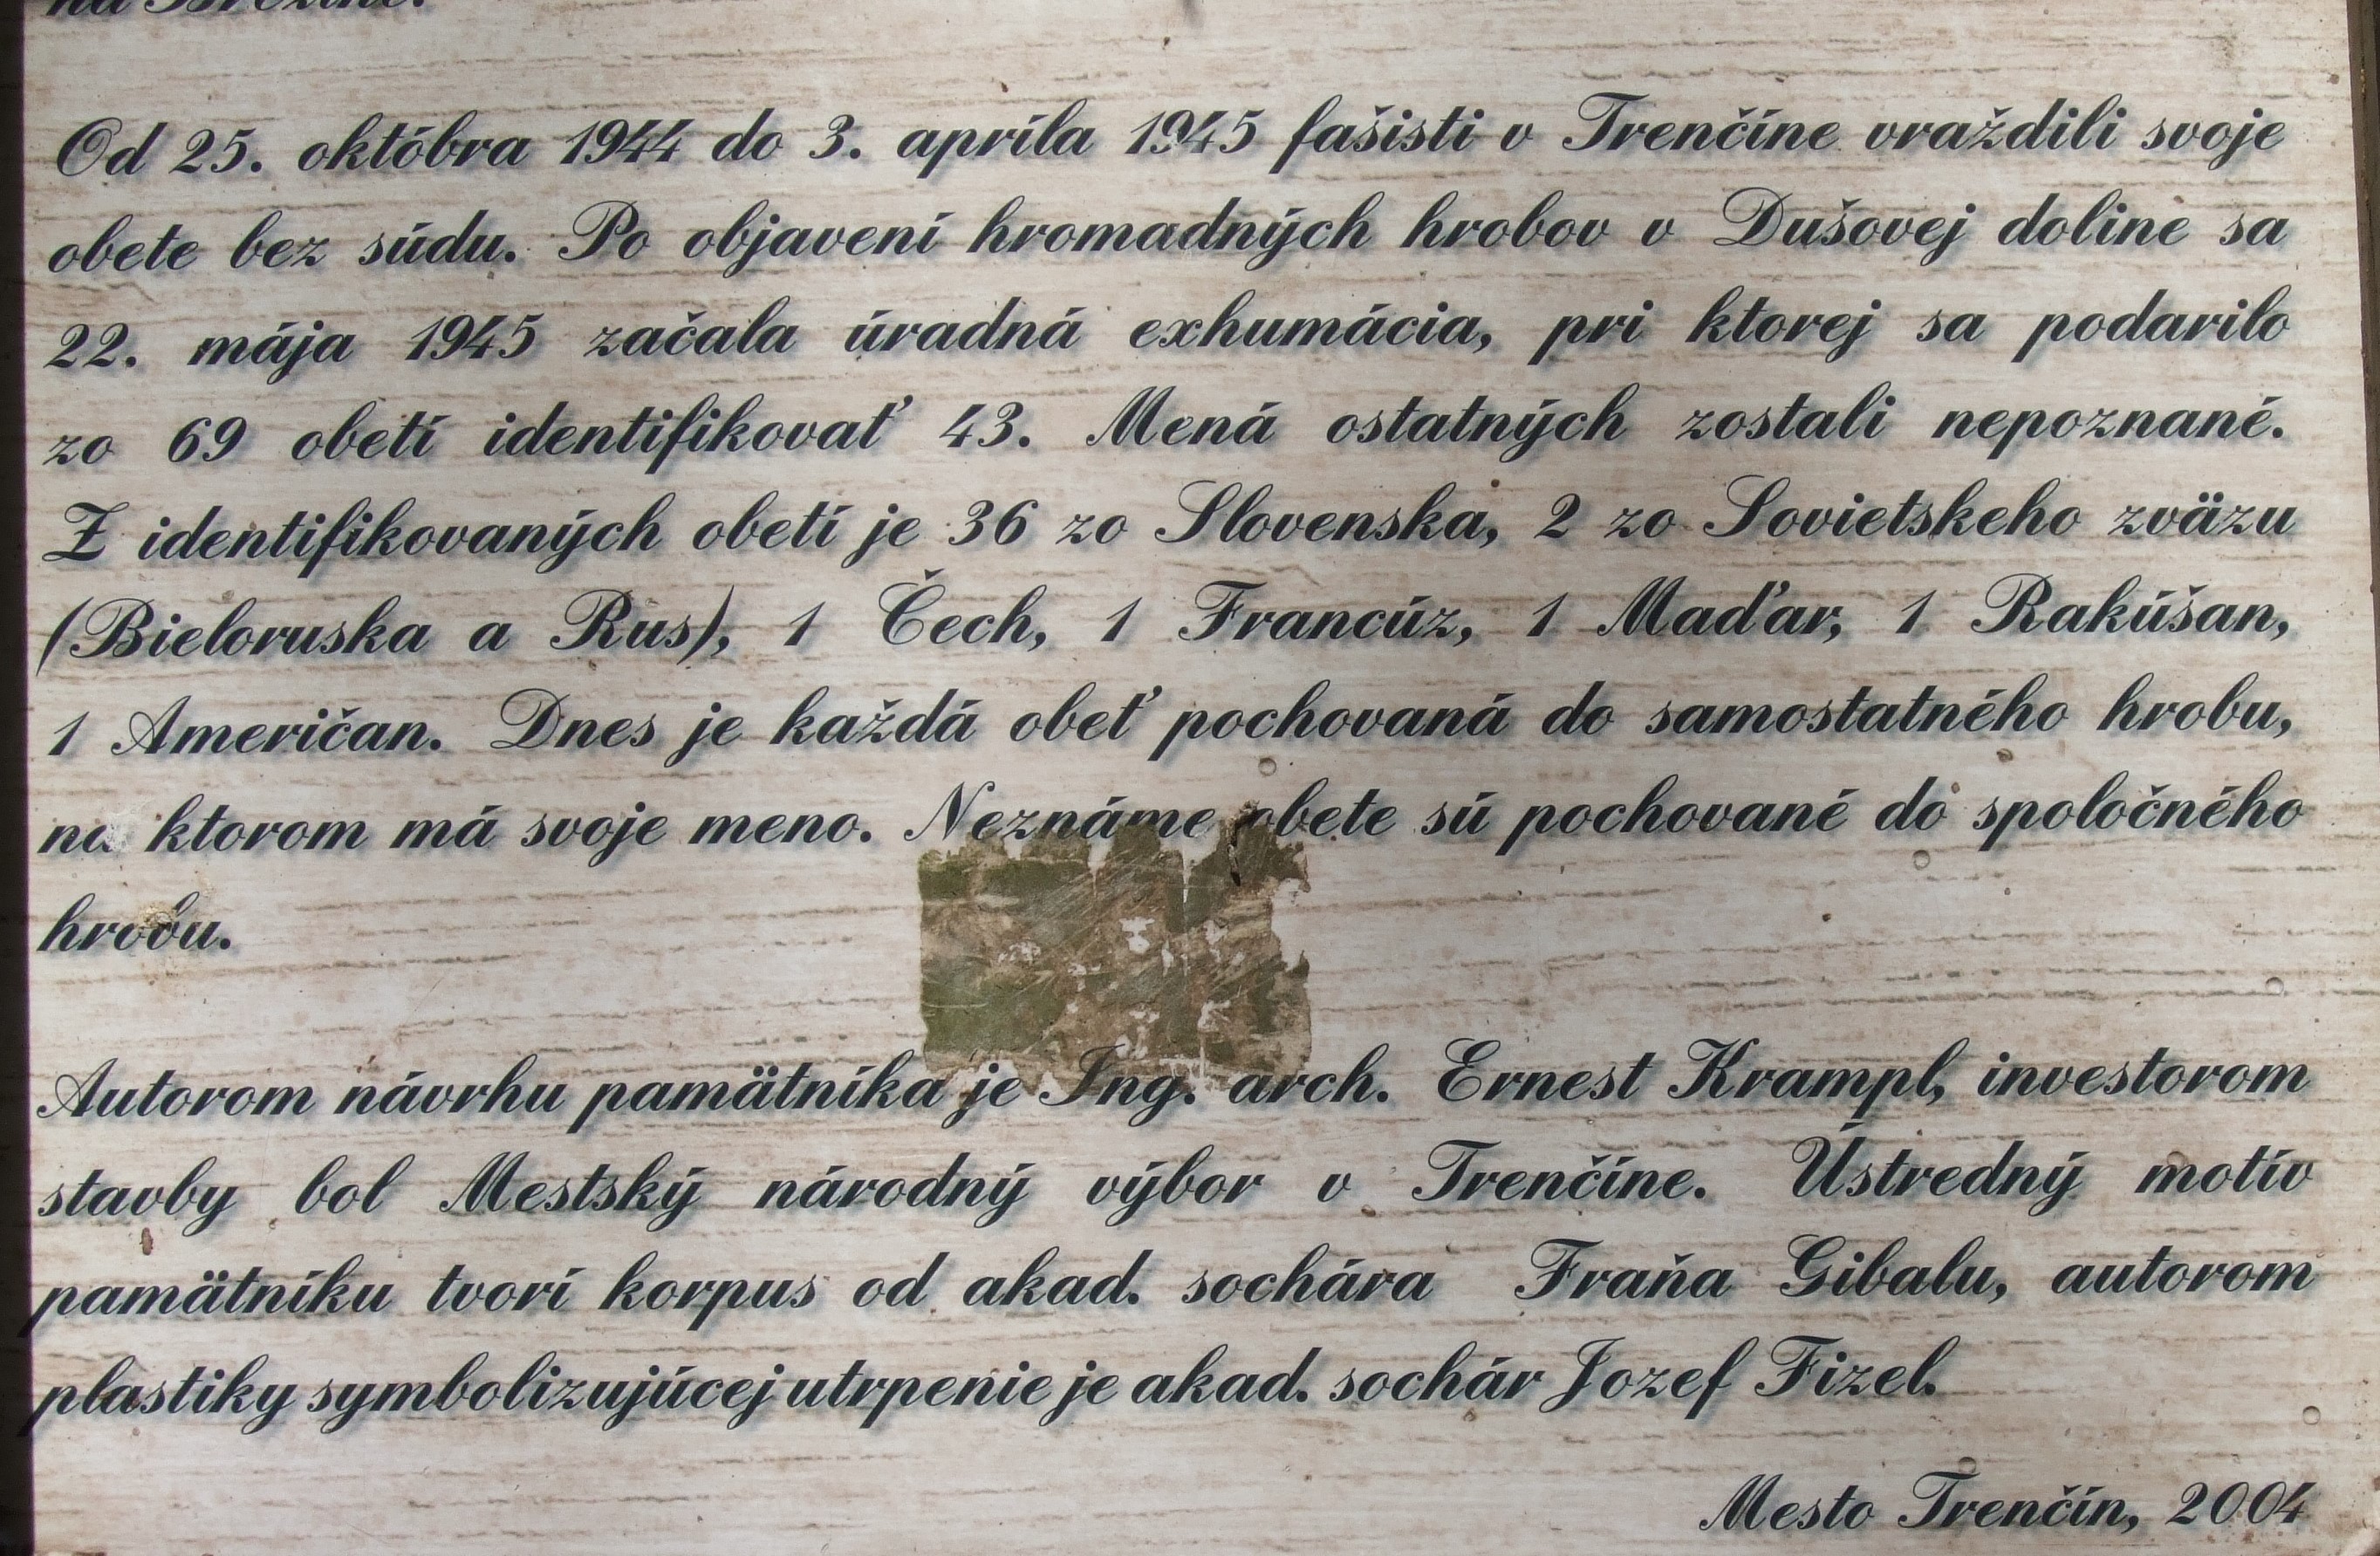 na Brezine.
Od 25. októbra 1944 do 3. apríla 1945 fašisti v Trenčíne vraždili svoje
obete bez súdu. Po objavení hromadných hrobov v Dušovej doline sa
22. mája 1945 začala úradná exhumácia, pri ktorej sa podarilo
zo 69 obetí identifikovať 43. Mená ostatných zostali nepoznané.
Z identifikovaných obetí je 36 zo Slovenska, 2 zo Sovietskeho zväzu
(Bieloruska a Rus), 1 Čech, 1 Francúz, 1 Maďar, 1 Rakúšan,
1 Američan. Dnes je každá obeť pochovaná do samostatného hrobu,
na ktorom má svoje meno. Neznáme obete sú pochované do spoločného
hrobu.
Autorom návrhu pamätníka je Ing. arch. Ernest Krampl, investorom
stavby bol Mestský národný výbor v Trenčíne. Ústredný motív
pamätníku tvorí korpus od akad. sochára Fraňa Gibalu, autorom
plastiky symbolizujúcej utrpenie je akad. sochár Jozef Fizel.
Mesto Trenčín, 2004